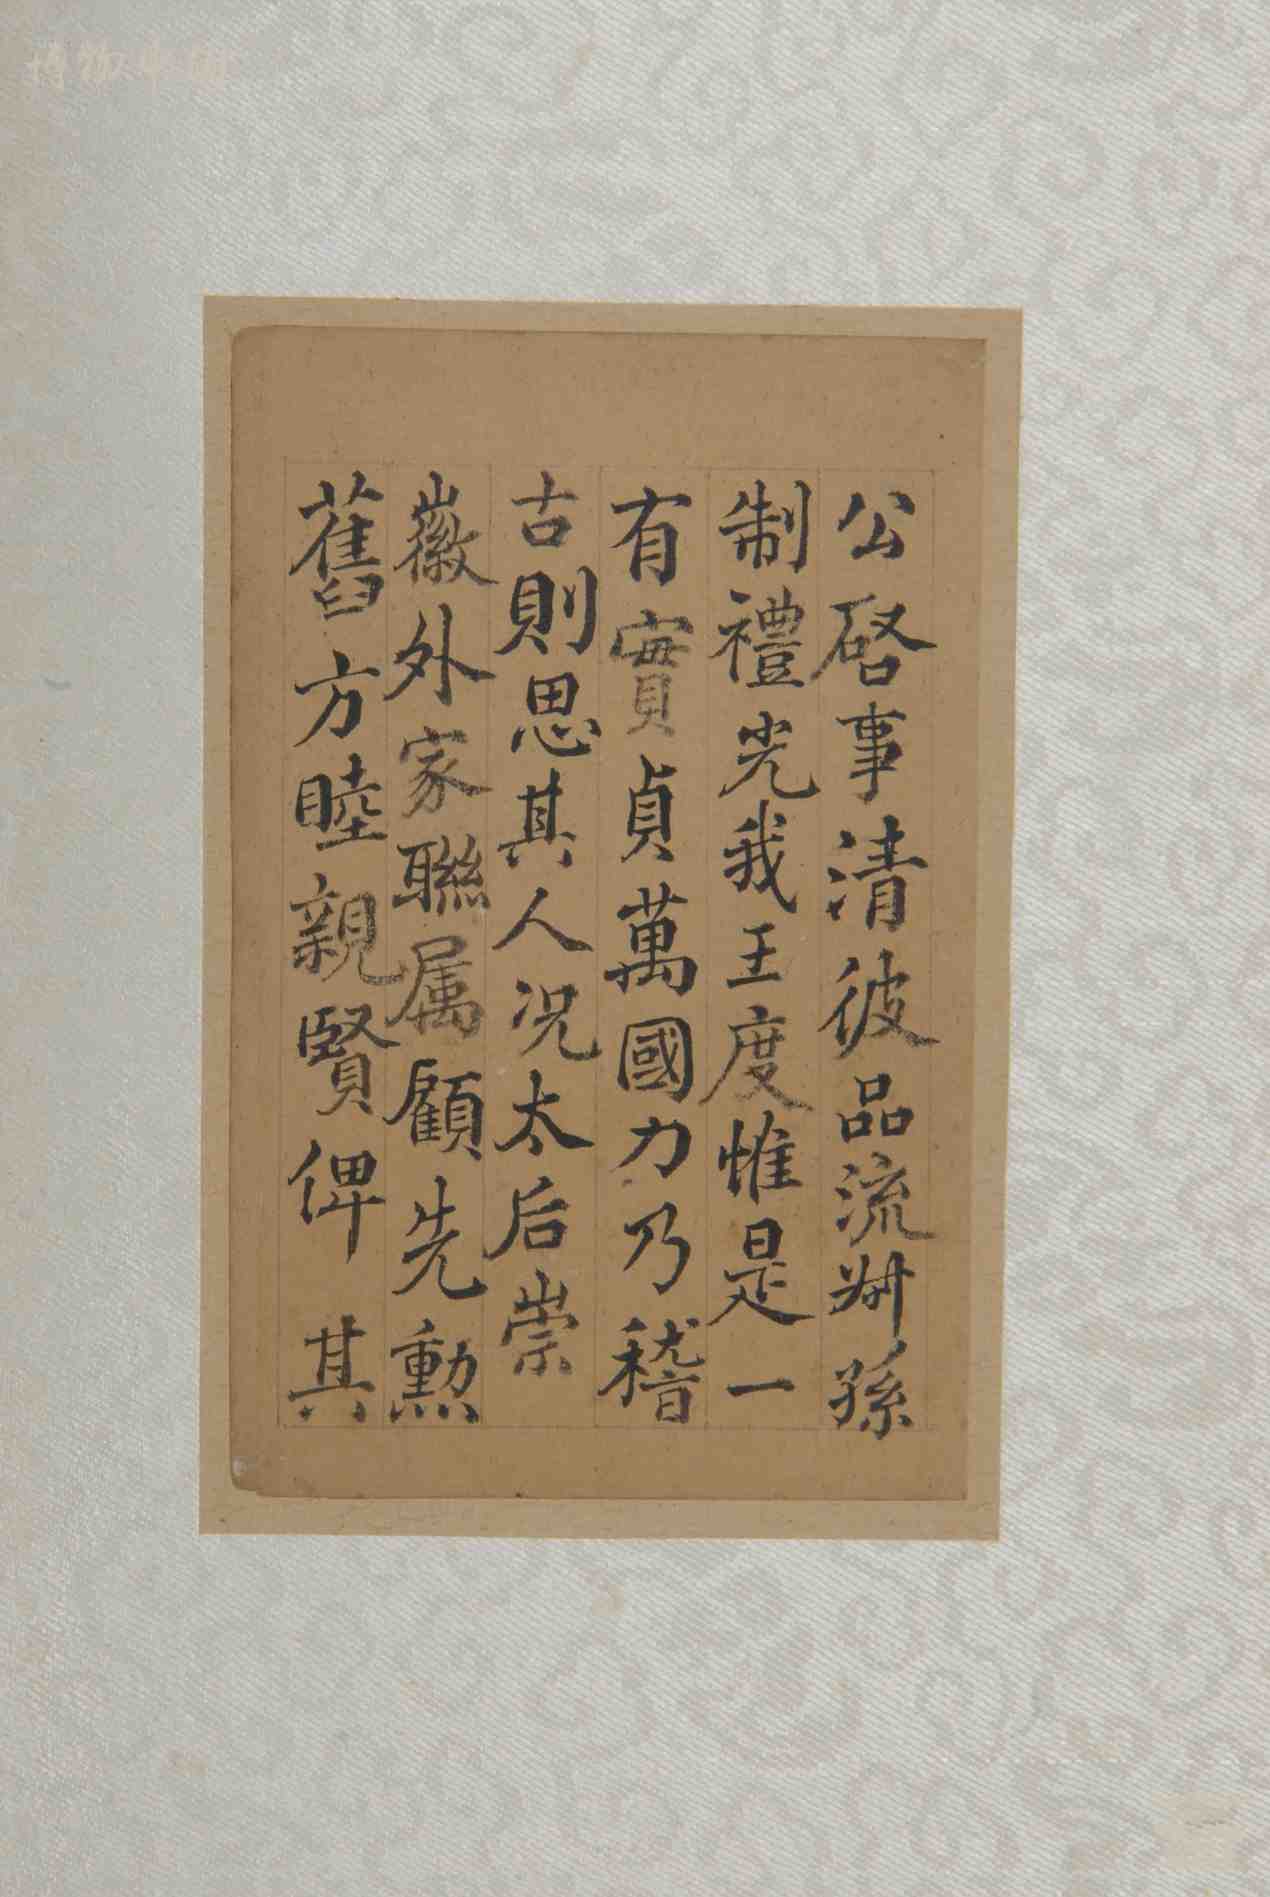 公啓事清彼品流叔孫
制禮光我王度惟是一
有實貞萬國力乃稽
古則思其人况太后崇
徽外家聯属顧先勲
舊方睦親賢俾其